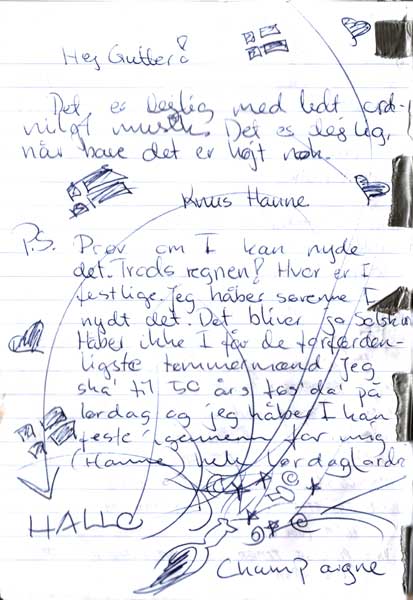 Hej Gutter!
Det er dejlig med lidt ord-
nligt musik. Det es dejlig,
når bare det er højt nok.
Knus Hanne
P.S. Prøv om I kan nyde
det. Trods regnen! Hvor er I
festlige. Jeg håber I
nydt det. Det bliver jo Solskin
Håber ikke I får de forfærden-
ligste tømmermænd Jeg
ska' til 50 års føs'da' på
lørdag og jeg håber I kan
feste igennem for mig
(Hanne) hele
HALLO
Champaigne